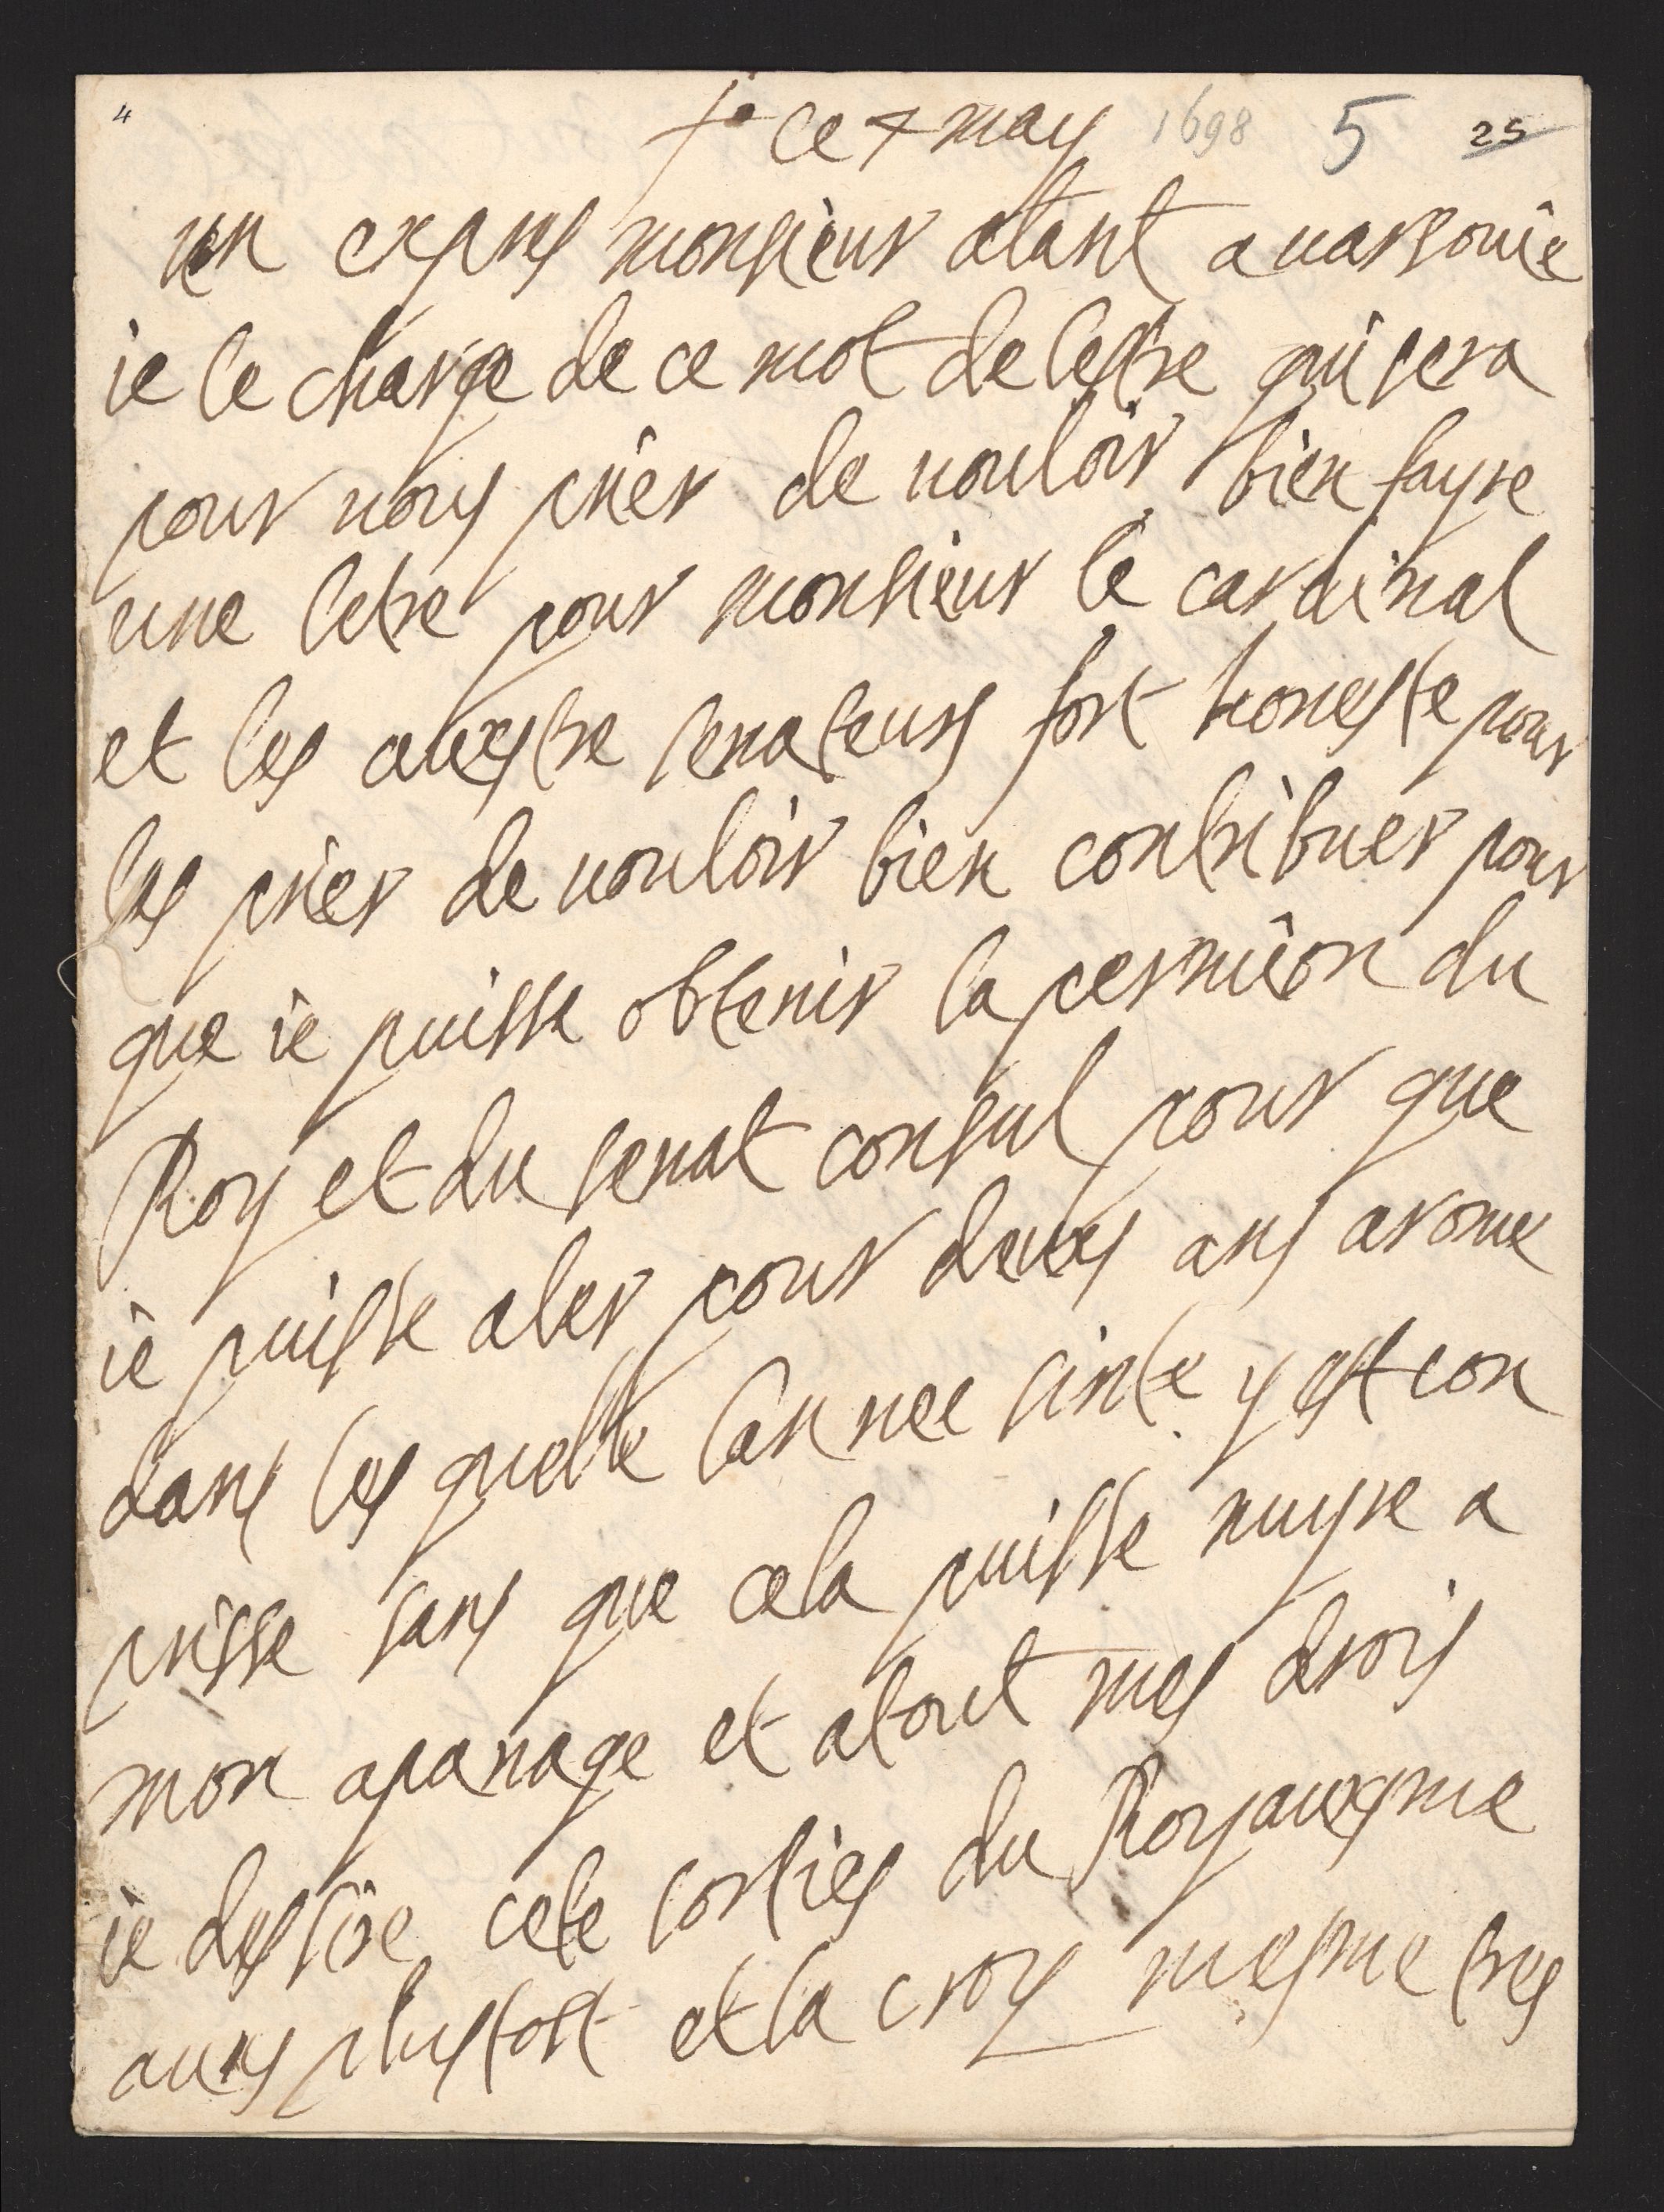 4 ce 7 may 1698 5 25
un expres monsieur alant a uarsouie
ie le charge de ce mot de lestre qui sera
pour uous prier de uouloir bien fayre
une letre pour monsieur le cardinal
et les auestre senateurs fort honeste pour
les prier de uouloir bien contribuer pour
que ie puisse obtenir la permiion du
Roy et du senat consul pour que
ie puisse aler pour deuxs ans a rome
dans les quelle lannee sinte y est con
prisse sans que cela puisse nuyre a
mon apanage et a tout mes drois
ie dessire cete sorties du Royauxsme
auxs plustost et la croy mesme tres